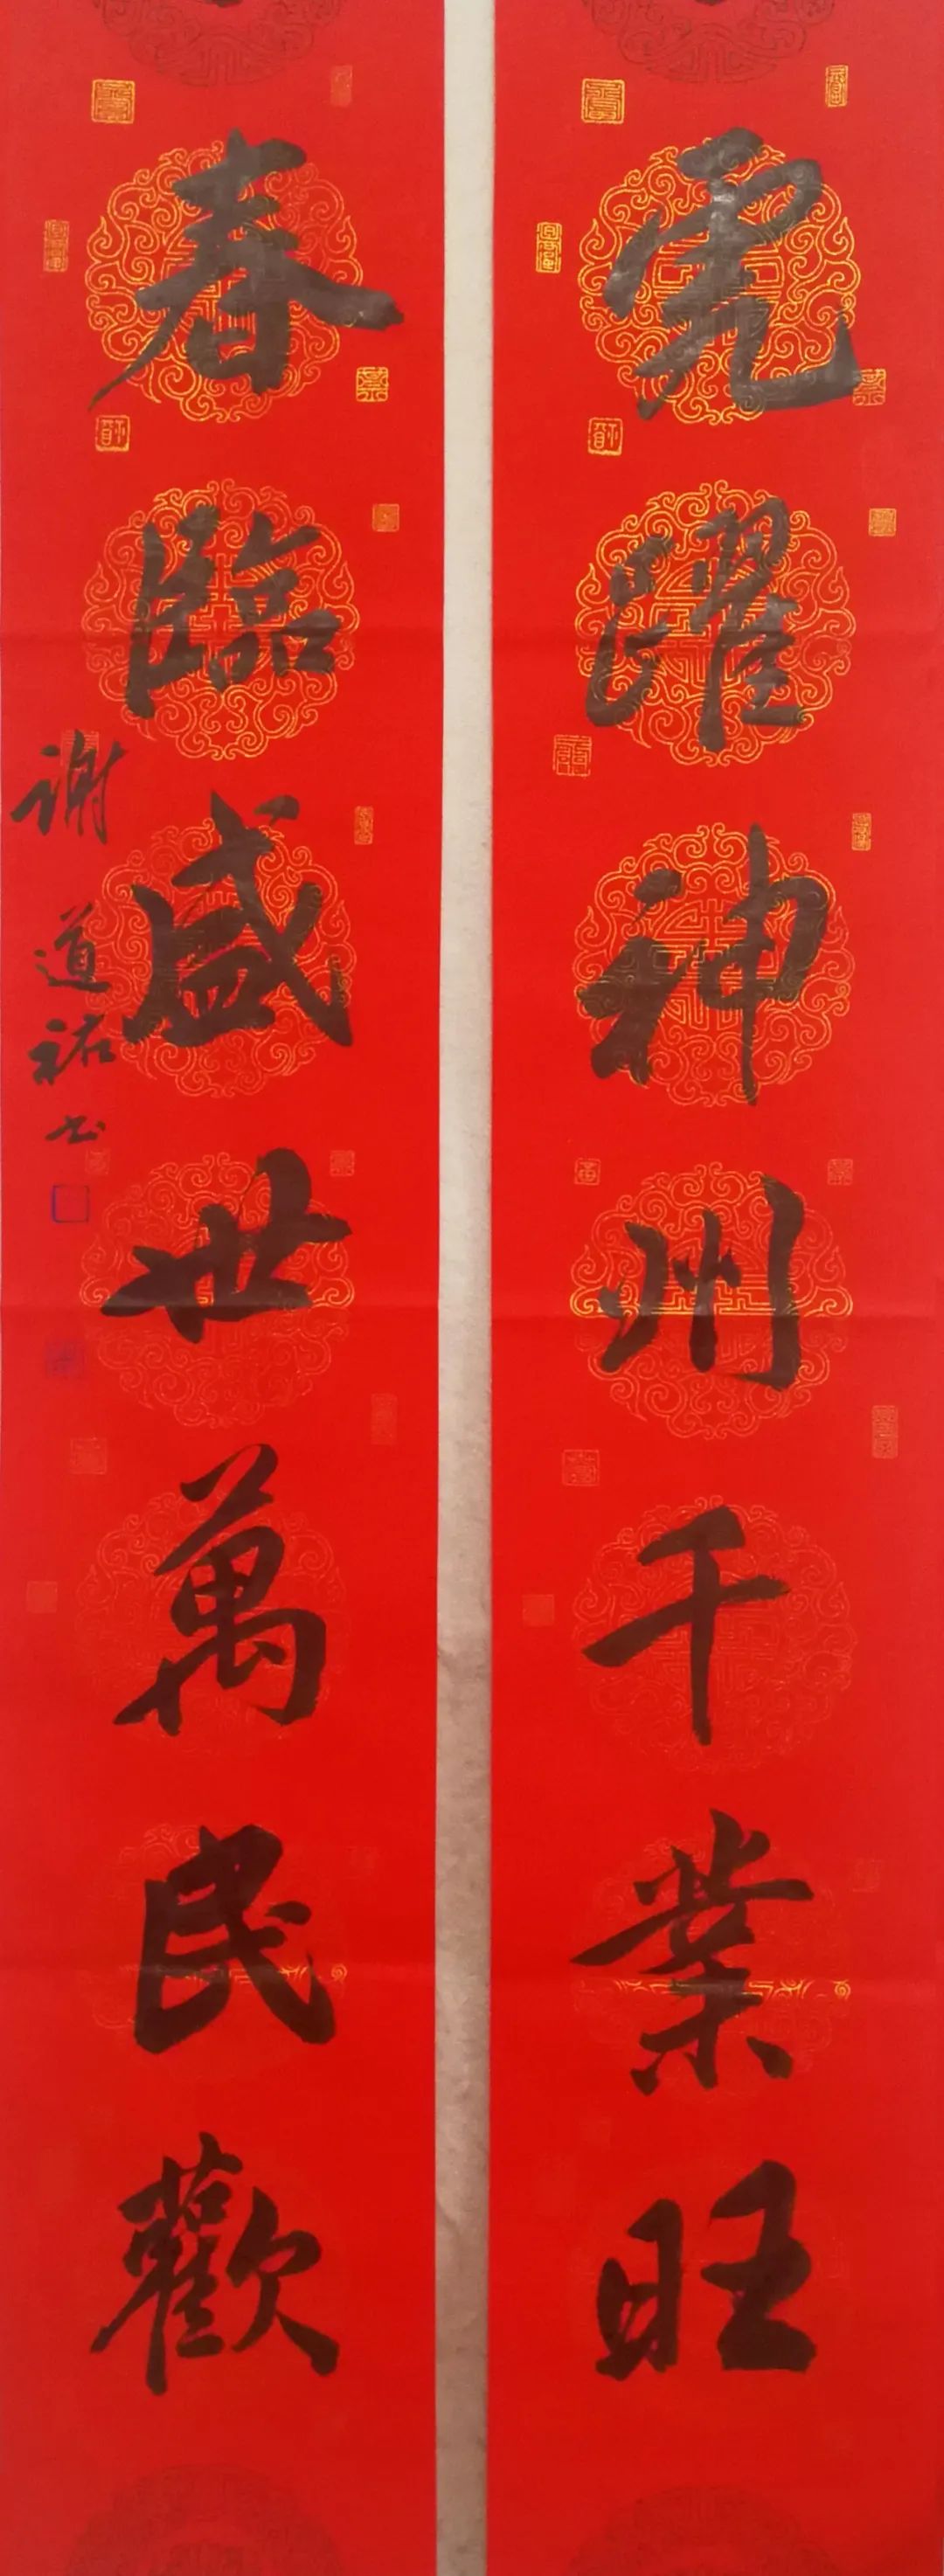 虎躍神州千業旺
春臨盛世萬民歡
谢道祐书